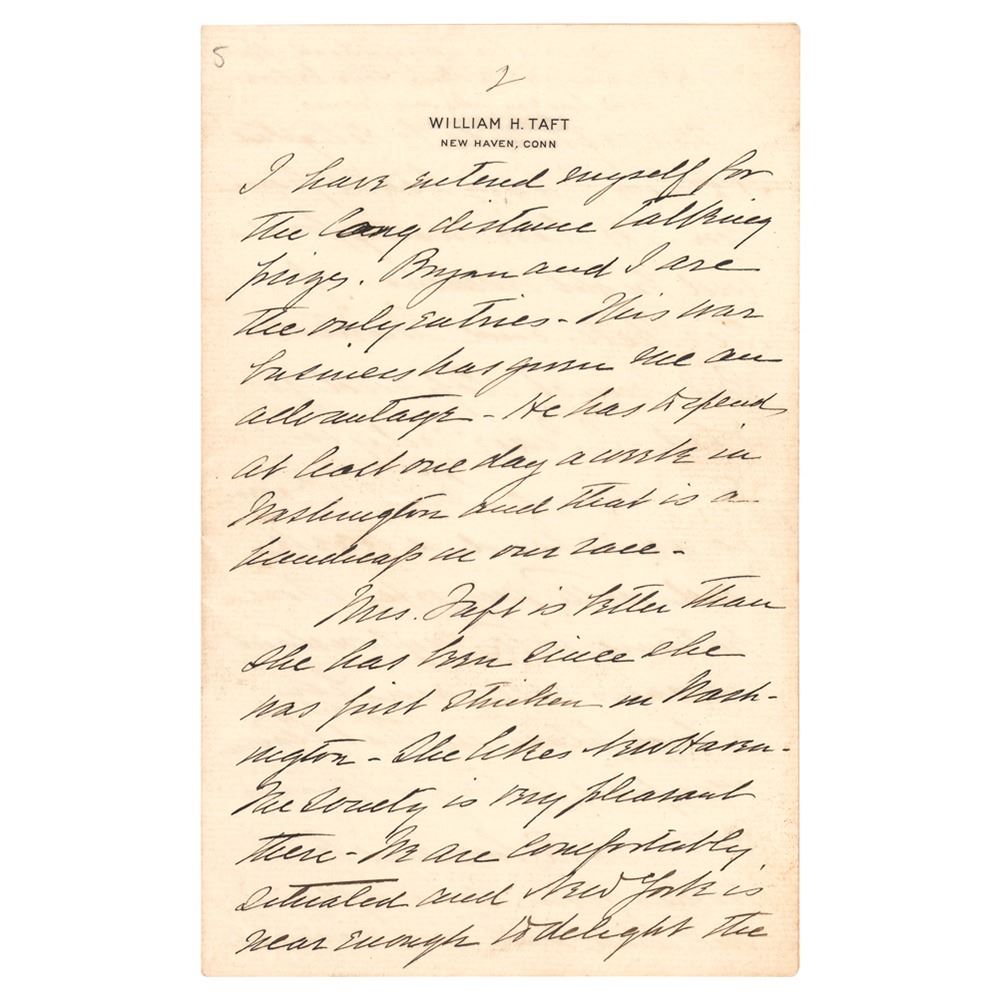 5
2
WILLIAM H. TAFT
NEW HAVEN, CONN
I have entered myself for
the long distance talking
prize. Bryan and I are
the only entries - This war
business has given me an
advantage - He has to spend
at least one day a week in
Washington and that is a
handicap in our race -
Mrs. Taft is better than
she has been since she
was first stricken in Wash-
ington - She likes New Haven -
The society is very pleasant
there - We are comfortably
situated and New York is
near enough to delight the